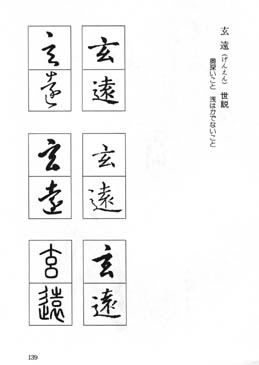 玄遠（げんえん） 世説
奥深いこと 浅はかでないこと
玄遠
玄遠
玄遠
玄遠
玄遠
玄遠
139